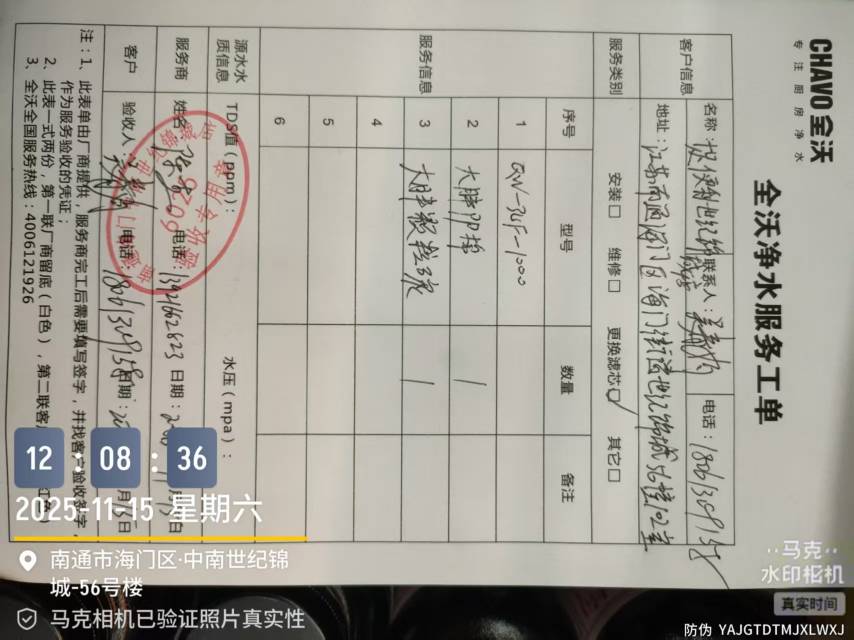 CHAVO 全沃
专注厨房净水
全沃净水服务工单
客户信息
名称:
联系人:
电话:18061309158
地址:江苏南通海门区海门街道世纪锦城56幢102室
服务类别
安装□ 维修□ 更换滤芯☑ 其它□
服务信息
序号 型号 数量 备注
1
2 大胖 1
3 大胖颗粒炭 1
4
5
6
源水水质信息
TDS值(ppm): 水压(mpa):
服务商 姓名: 电话: 日期:
客户 验收人: 电话:18061309158 日期:
注:1、此表单由厂商提供,服务商完工后需要填写签字,并找客户验收签字,
作为服务验收的凭证;
2、此表一式两份,第一联厂商留底(白色),第二联客
3、全沃全国服务热线:4006121926
验收专用章
12:08:36
2025-11-15 星期六
南通市海门区·中南世纪锦
城-56号楼
马克相机已验证照片真实性
马克
水印相机
真实时间
防伪 YAJGTDTMJXLWXJ